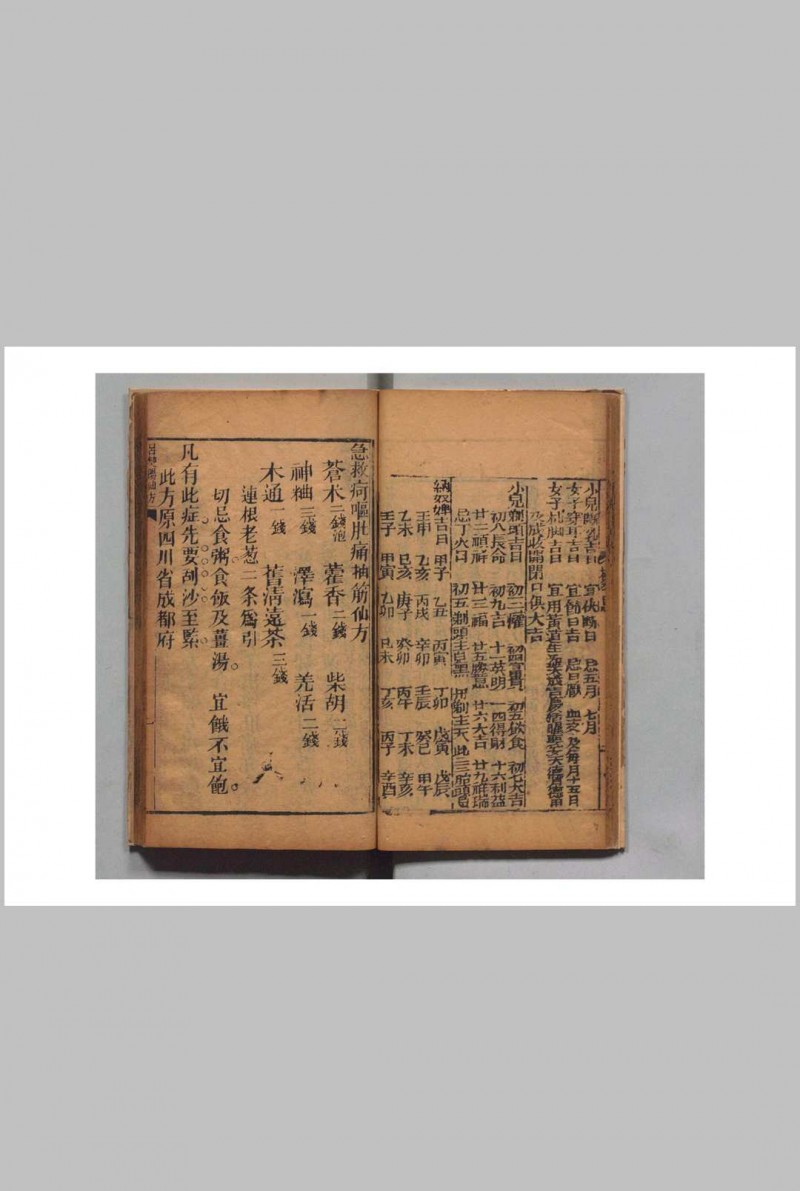 小兒斷乳吉日　宜伏斷日　忌五月　七月
女子穿耳吉日　宜
女子 脚吉日　宜用黃道生
及成收開閉日俱大吉
小兒剃頭吉日　初三 　初四富貴　初五飲食　初七大吉
初八長命　初九吉　十一英明　十四得財　十六利益
廿二 　廿三福　廿五 　廿六大吉　廿九祥瑞
忌丁火日　初五剃頭主
納奴婢吉日　甲子　乙丑　丙寅　丁卯　戊寅　戊辰
壬申　乙亥　丙戌　辛卯　壬辰　癸巳　甲午
乙未　己亥　庚子　癸卯　丙午　丁未　辛亥
壬子　甲寅　乙卯　己未　丁亥　丙子　辛酉
急救痾嘔肚痛抽筋仙方
蒼朮二錢泡　藿香二錢　柴胡二錢
神粬三錢　澤瀉一錢　羌活二錢
木通一錢　舊清遠茶三錢
連根老葱二条爲引
切忌食粥食飯及薑湯。宜餓不宜飽。
凡有此症先要刮沙至緊
此方原四川省成都府